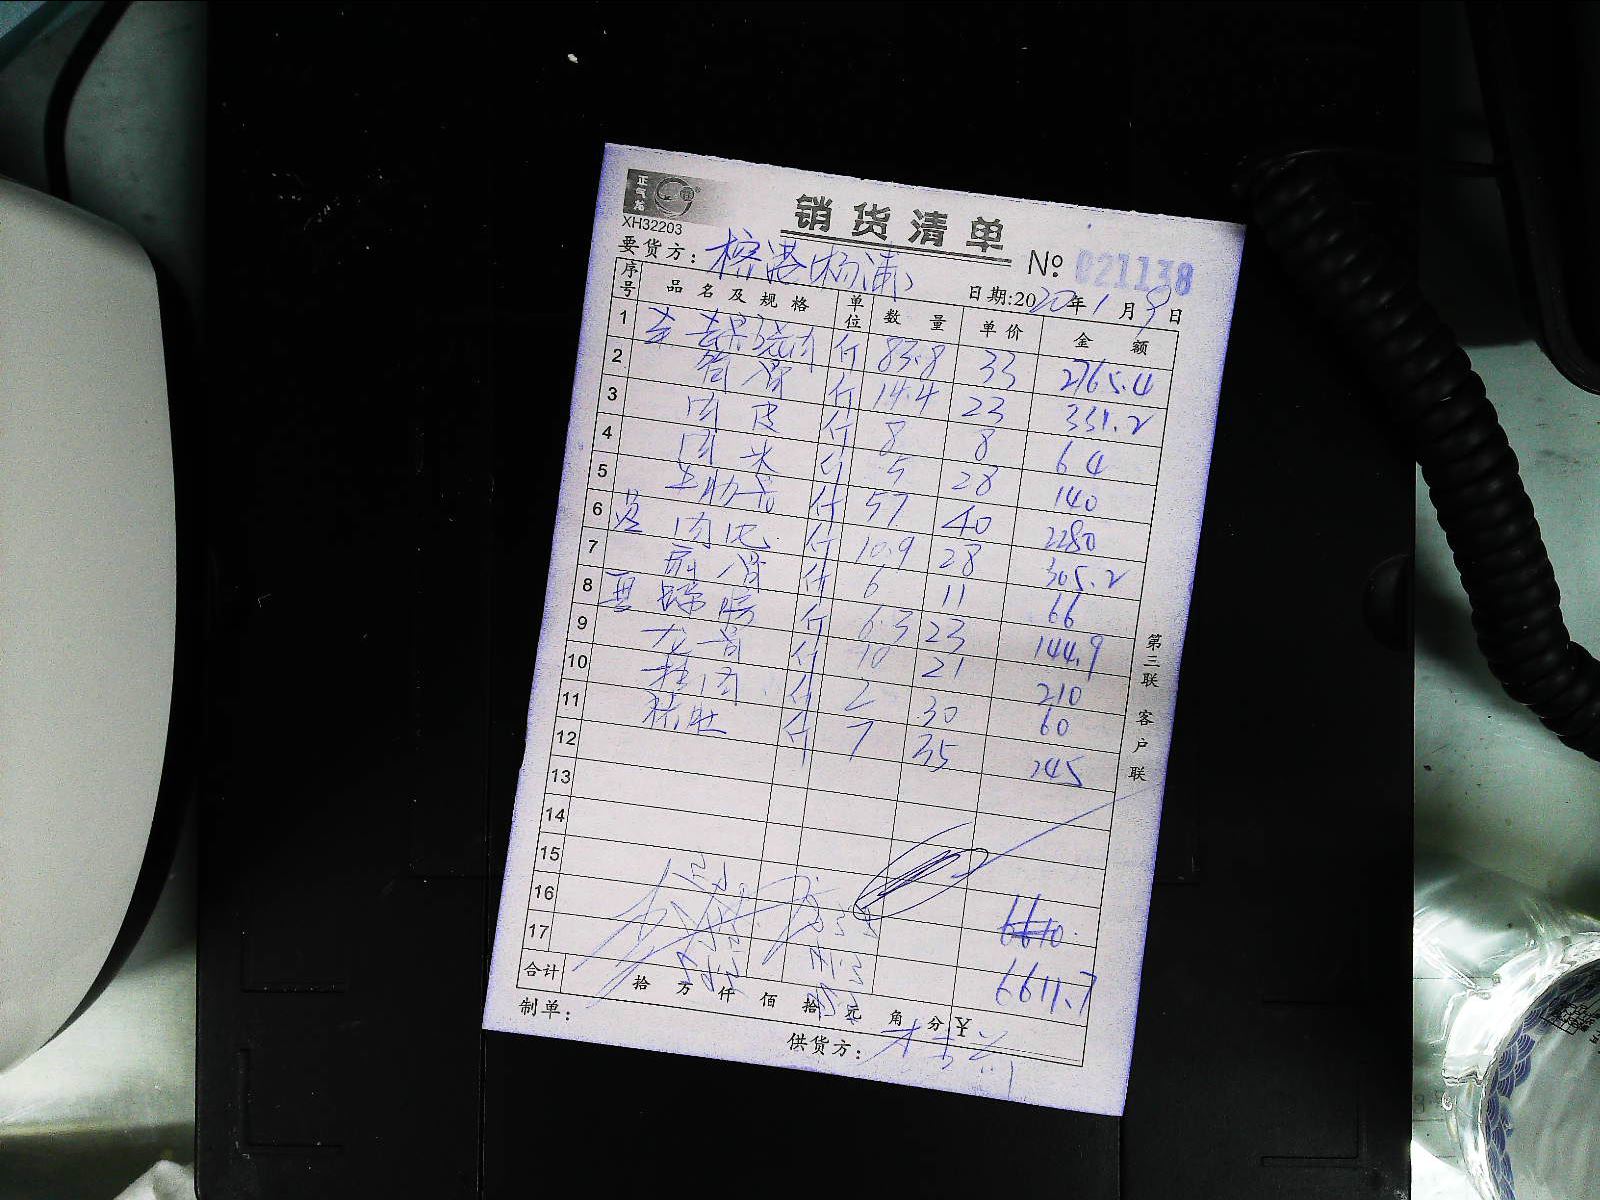 正气龙
XH32203
销货清单
№ 021138
要货方: 榕港(杨浦)
日期:2020年1月9日
序号 品名及规格 单位 数量 单价 金额
1 斤 83.8 33 2765.4
2 斤 14.4 23 331.2
3 肉皮 斤 8 8 64
4 斤 5 28 140
5 斤 57 40 2280
6 斤 10.9 28 305.2
7 斤 6 11 66
8 斤 6.3 23 144.9
9 龙骨 斤 10 21 210
10 斤 2 30 60
11 猪肚 斤 7 35 245
12
13
14
15
16 6610
17 6611.7
合计 拾 万 仟 佰 拾 元 角 分 ¥
制单:
供货方:
第三联 客户联